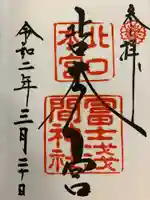 奉拝
北口
本宮
冨士浅
間神社
宮
令和二年三月二十日